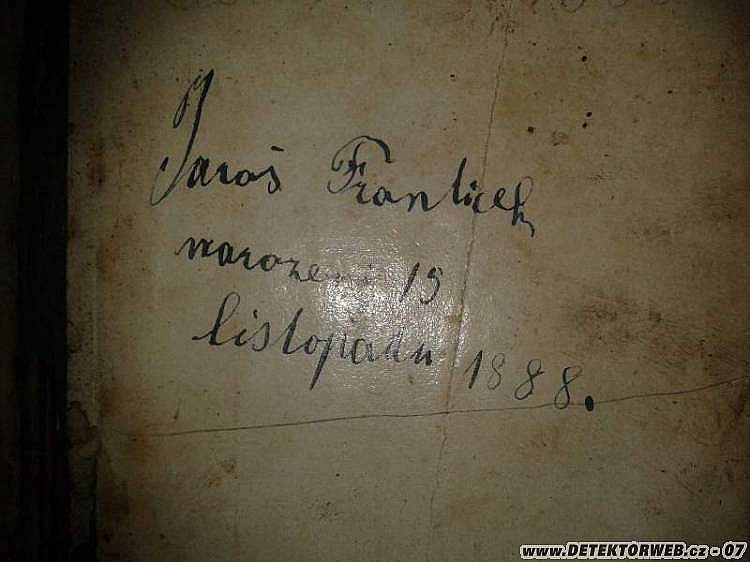 Jaroš Franticek
narozeni 19
listopadu 1888.
www.DETEKTORWEB.cz - 07